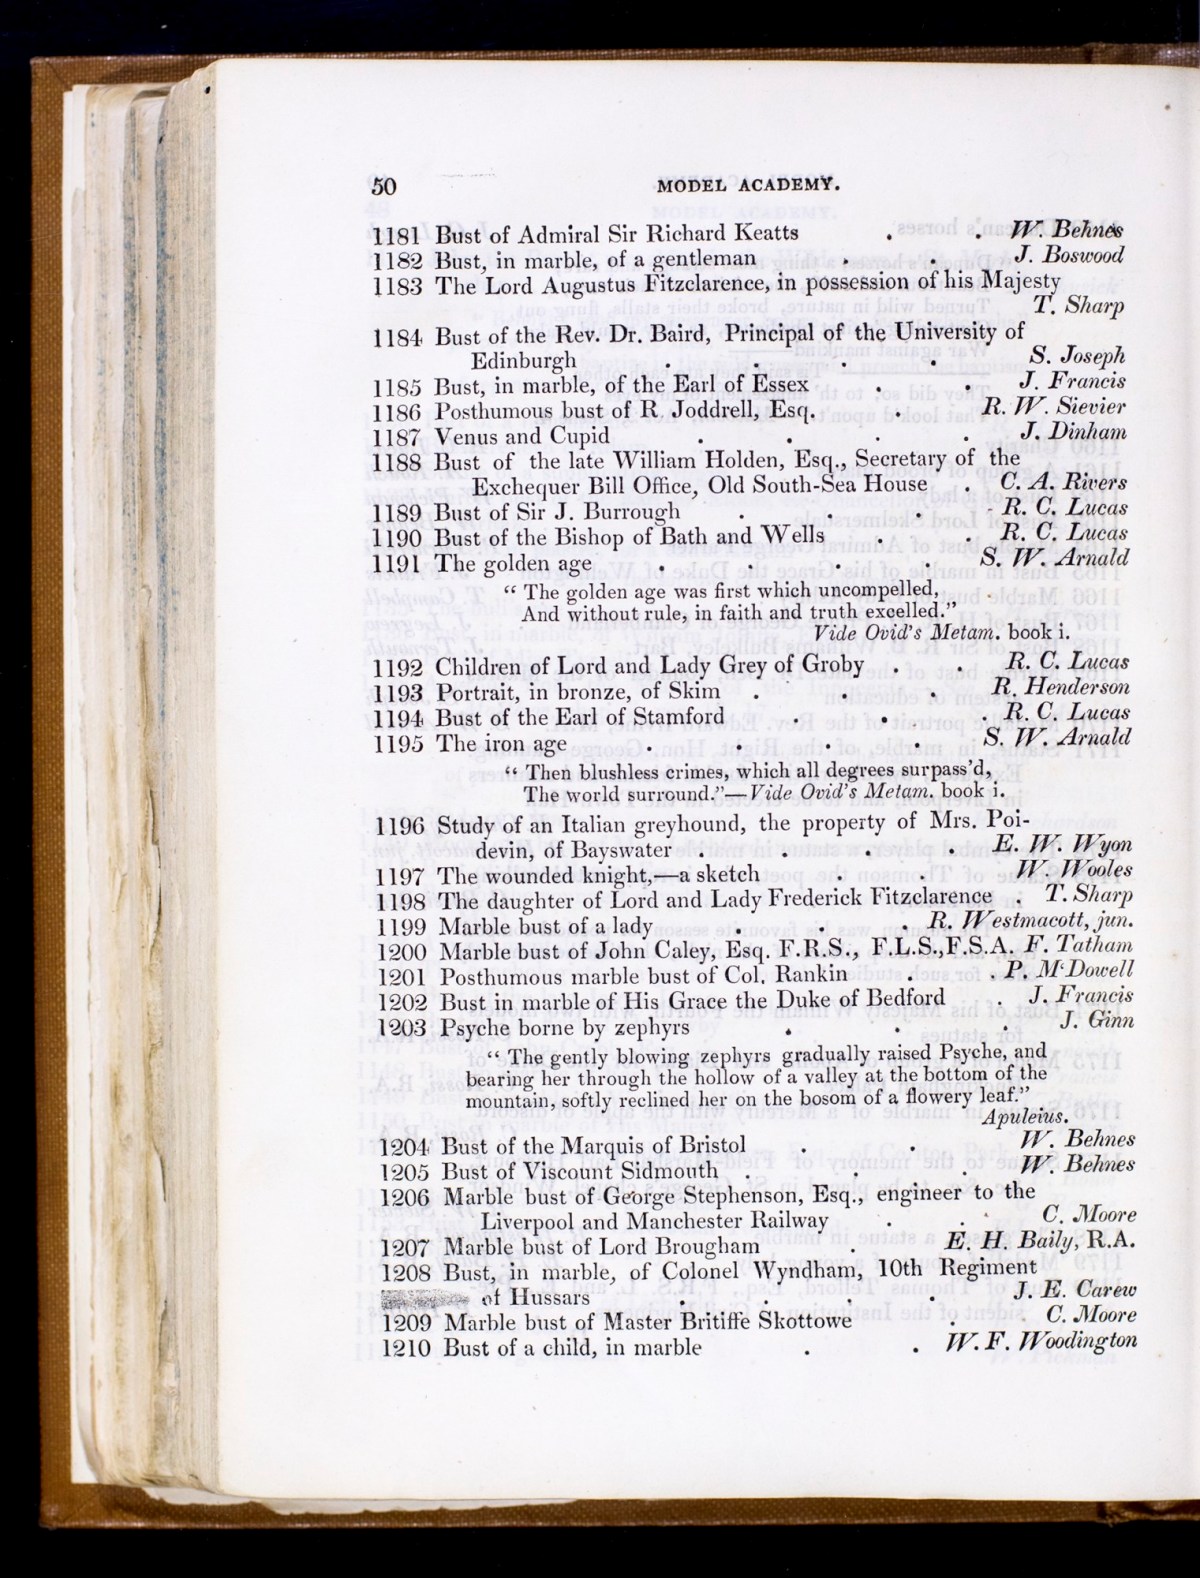 50 MODEL ACADEMY.
1181 Bust of Admiral Sir Richard Keatts . . W. Behnes
1182 Bust, in marble, of a gentleman . . J. Boswood
1183 The Lord Augustus Fitzclarence, in possession of his Majesty
T. Sharp
1184 Bust of the Rev. Dr. Baird, Principal of the University of
Edinburgh . . . . S. Joseph
1185 Bust, in marble, of the Earl of Essex . . J. Francis
1186 Posthumous bust of R. Joddrell, Esq. . . R. W. Sievier
1187 Venus and Cupid . . . . J. Dinham
1188 Bust of the late William Holden, Esq., Secretary of the
Exchequer Bill Office, Old South-Sea House . C. A. Rivers
1189 Bust of Sir J. Burrough . . . R. C. Lucas
1190 Bust of the Bishop of Bath and Wells . . R. C. Lucas
1191 The golden age . . . . S. W. Arnald
“ The golden age was first which uncompelled,
And without rule, in faith and truth excelled.”
Vide Ovid's Metam. book i.
1192 Children of Lord and Lady Grey of Groby . . R. C. Lucas
1193 Portrait, in bronze, of Skim . . . R. Henderson
1194 Bust of the Earl of Stamford . . . R. C. Lucas
1195 The iron age . . . . S. W. Arnald
“ Then blushless crimes, which all degrees surpass'd,
The world surround.”—Vide Ovid's Metam. book i.
1196 Study of an Italian greyhound, the property of Mrs. Poi-
devin, of Bayswater . . . . E. W. Wyon
1197 The wounded knight,—a sketch . . W. Wooles
1198 The daughter of Lord and Lady Frederick Fitzclarence . T. Sharp
1199 Marble bust of a lady . . . R. Westmacott, jun.
1200 Marble bust of John Caley, Esq. F.R.S., F.L.S., F.S.A. F. Tatham
1201 Posthumous marble bust of Col. Rankin . . P. M‘Dowell
1202 Bust in marble of His Grace the Duke of Bedford . J. Francis
1203 Psyche borne by zephyrs . . . J. Ginn
“ The gently blowing zephyrs gradually raised Psyche, and
bearing her through the hollow of a valley at the bottom of the
mountain, softly reclined her on the bosom of a flowery leaf.”
Apuleius.
1204 Bust of the Marquis of Bristol . . W. Behnes
1205 Bust of Viscount Sidmouth . . W. Behnes
1206 Marble bust of George Stephenson, Esq., engineer to the
Liverpool and Manchester Railway . . C. Moore
1207 Marble bust of Lord Brougham . E. H. Baily, R.A.
1208 Bust, in marble, of Colonel Wyndham, 10th Regiment
of Hussars . . . . J. E. Carew
1209 Marble bust of Master Britiffe Skottowe . C. Moore
1210 Bust of a child, in marble . . W. F. Woodington